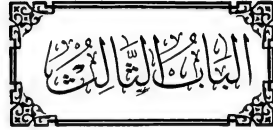 البَابُ الثَّالِثُ